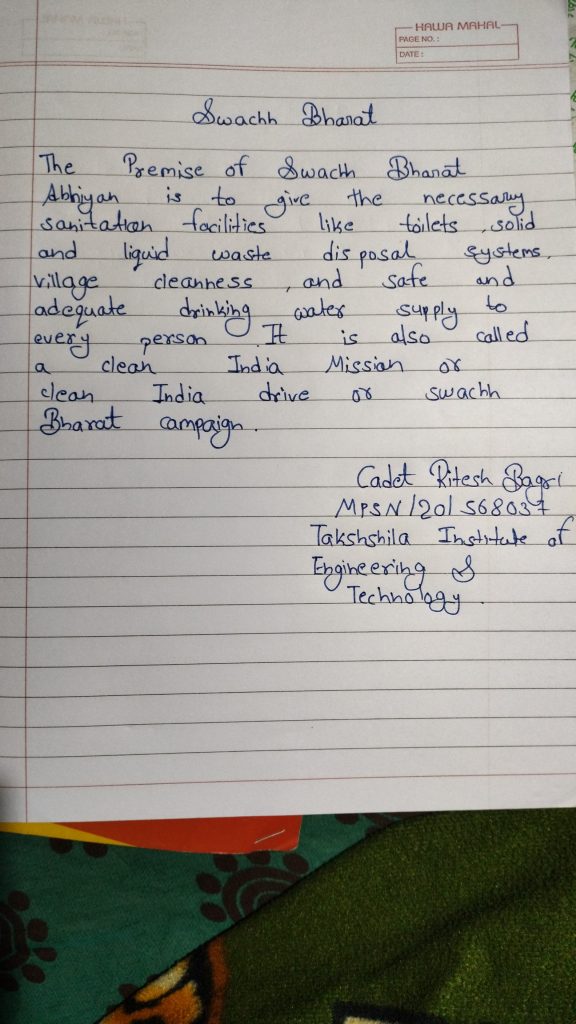 HAWA MAHAL
PAGE NO. :
DATE :
Swachh Bharat
The Premise of Swachh Bharat
Abhiyan is to give the necessary
sanitation facilities like toilets, solid
and liquid waste disposal systems,
village cleanness, and safe and
adequate drinking water supply to
every person. It is also called
a clean India Mission or
clean India drive or swachh
Bharat campaign.
Cadet Ritesh Bagri
MPSN/20/568037
Takshshila Institute of
Engineering &
Technology.